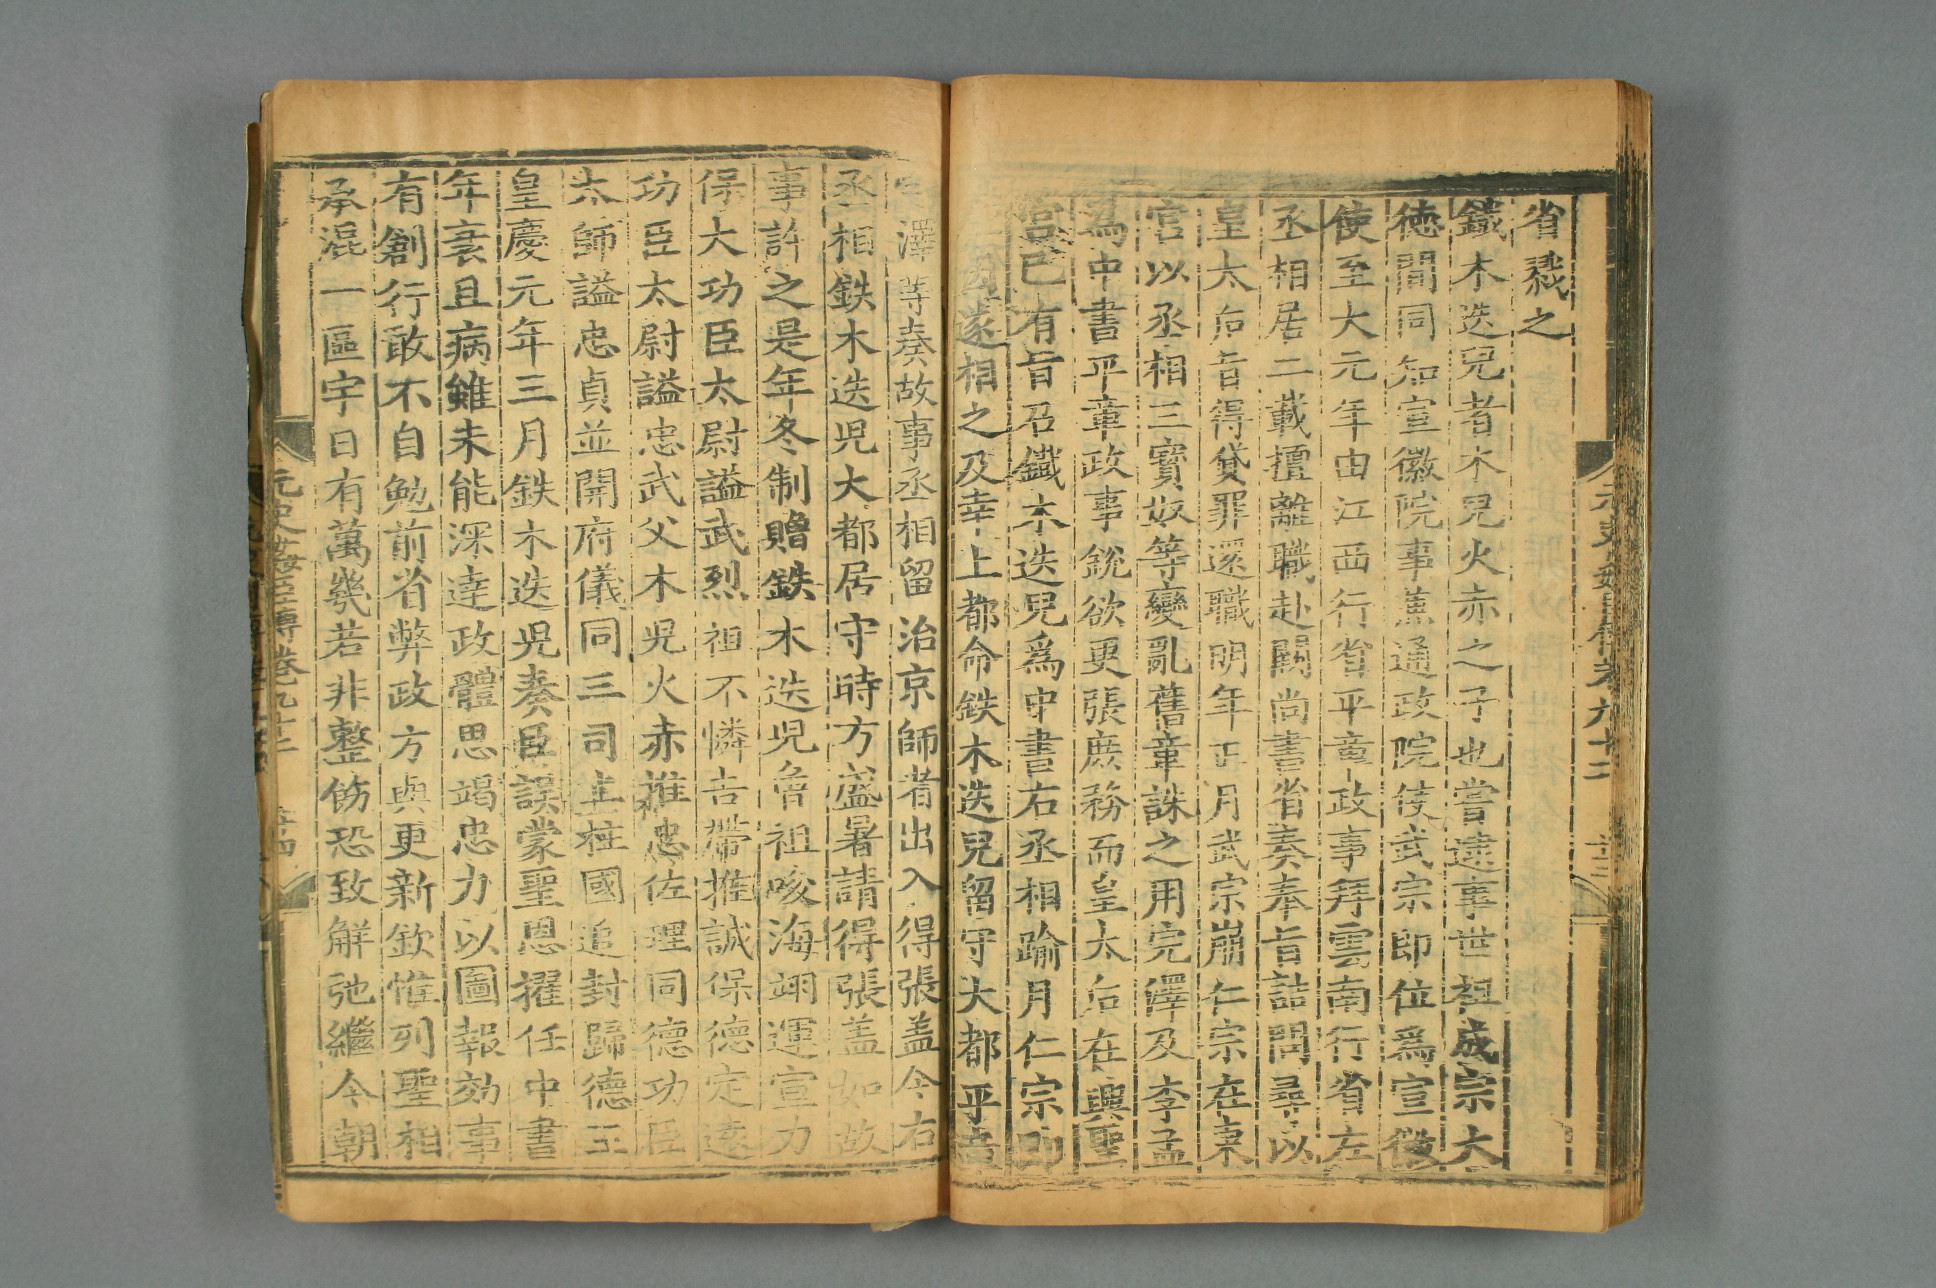 元史姦臣傳卷九十二
省戮之
鐵木迭兒者木兒火赤之子也嘗逮事世祖成宗大
徳間同知宣徽院事兼通政院使武宗即位爲宣徽
使至大元年由江西行省平章政事拜雲南行省左
丞相居二載擅離職赴闕尚書省奏奉旨詰問尋以
皇太后旨得貸罪還職明年正月武宗崩仁宗在東
宮以丞相三寶奴等變亂舊章誅之用完澤及李孟
爲中書平章政事銳欲更張庶務而皇太后在興聖
宮已有旨召鐵木迭兒爲中書右丞相踰月仁宗即
位因遂相之及幸上都命鉄木迭兒留守大都平章
完澤等奏故事丞相留治京師者出入得張盖今右
丞相鉄木迭児大都居守時方盛暑請得張盖如故
事許之是年冬制贈鉄木迭児曾祖唆海翊運宣力
保大功臣太尉謚武烈祖不憐吉帶推誠保德定遠
功臣太尉謚忠武父木児火赤推忠佐理同德功臣
太師謚忠貞並開府儀同三司上柱國追封歸德王
皇慶元年三月鉄木迭児奏臣誤蒙聖恩擢任中書
年衰且病雖未能深達政體思竭忠力以圖報効事
有創行敢不自勉前省弊政方與更新欽惟列聖相
承混一區宇日有萬幾若非整飭恐致解弛繼今朝
元史姦臣傳卷九十二